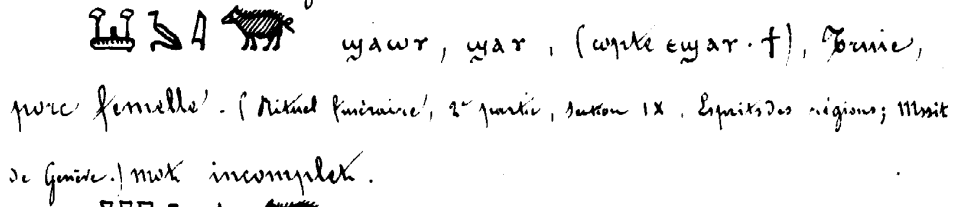 ϣⲁⲱⲣ, ϣⲁⲣ, (copte ⲉϣⲁⲣ · ϯ), Truie,
porc femelle. (Rituel funéraire, 2e partie, section IX. Esprits des régions; Mssit
de Genève.) mot incomplet.